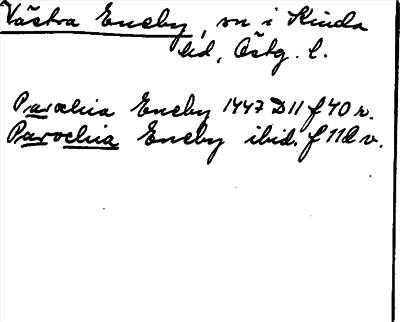 Västra Eneby, sn i Kinda
hd, Östg. l.
Parochia Eneby 1447 D 11 f 40 r.
Parochia Eneby ibid. f 112 v.